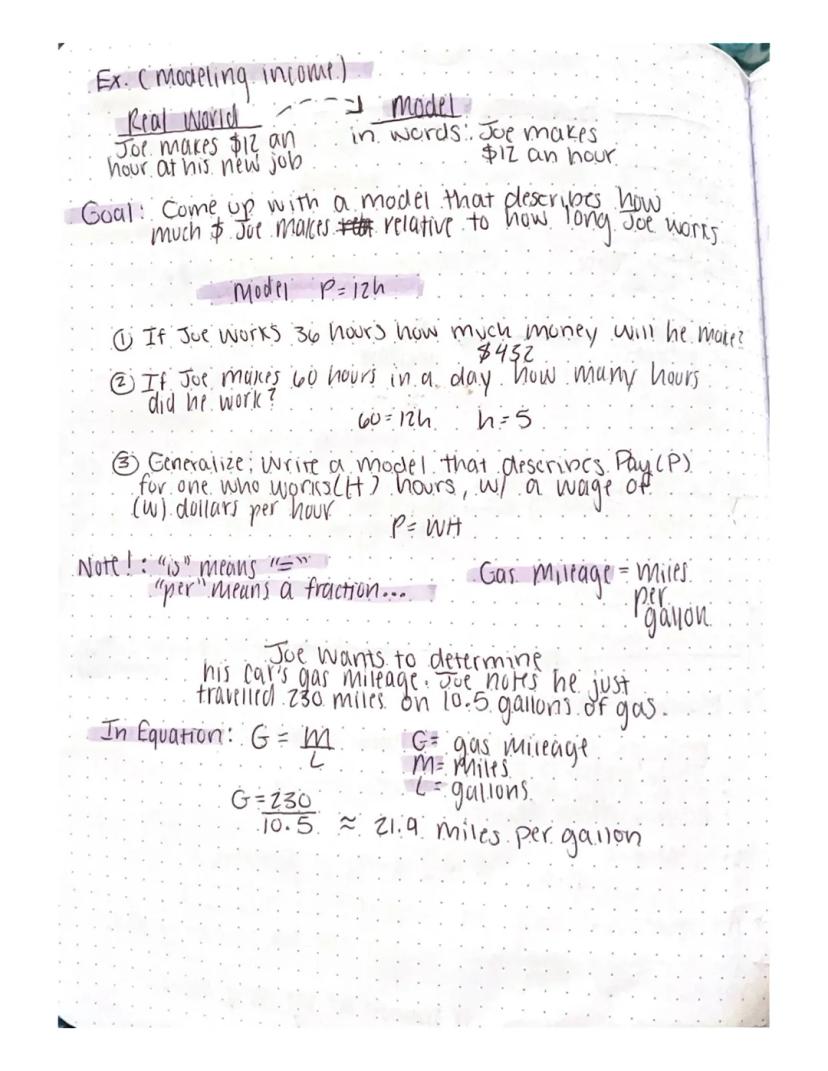 Ex. (Modeling income)
Real World
Model
Joe makes $12 an
hour at his new job
in words: Joe makes
$12 an hour
Goal: Come up with a model that describes how
much $ Joe makes relative to how long Joe works
Model P=12h
① If Joe works 36 hours how much money will he make?
$432
② If Joe makes 60 hours in a day how many hours
did he work?
60=12h h=5
③ Generalize: Write a model that describes Pay(P)
for one who works(H) hours, w/ a wage of
(W) dollars per hour
P=WH
Note!: "is" means "="
"per" means a fraction...
Gas Mileage = miles
per
gallon
Joe wants to determine
his car's gas mileage. Joe notes he just
travelled 230 miles on 10.5 gallons of gas.
In Equation: G = M
L
G= gas mileage
M= Miles
L= gallons
G=230
10.5 ≈ 21.9 miles per gallon